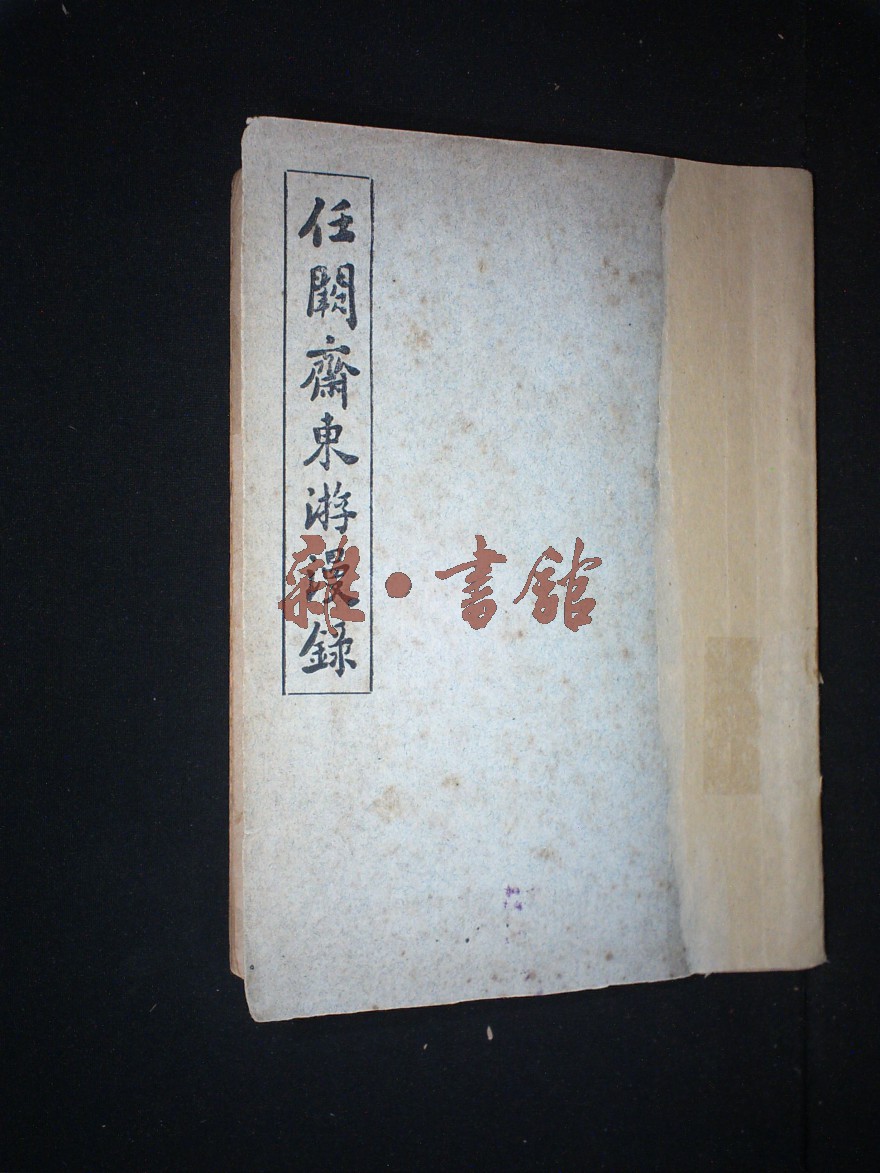 任闕齋東游漫錄
雜·書館